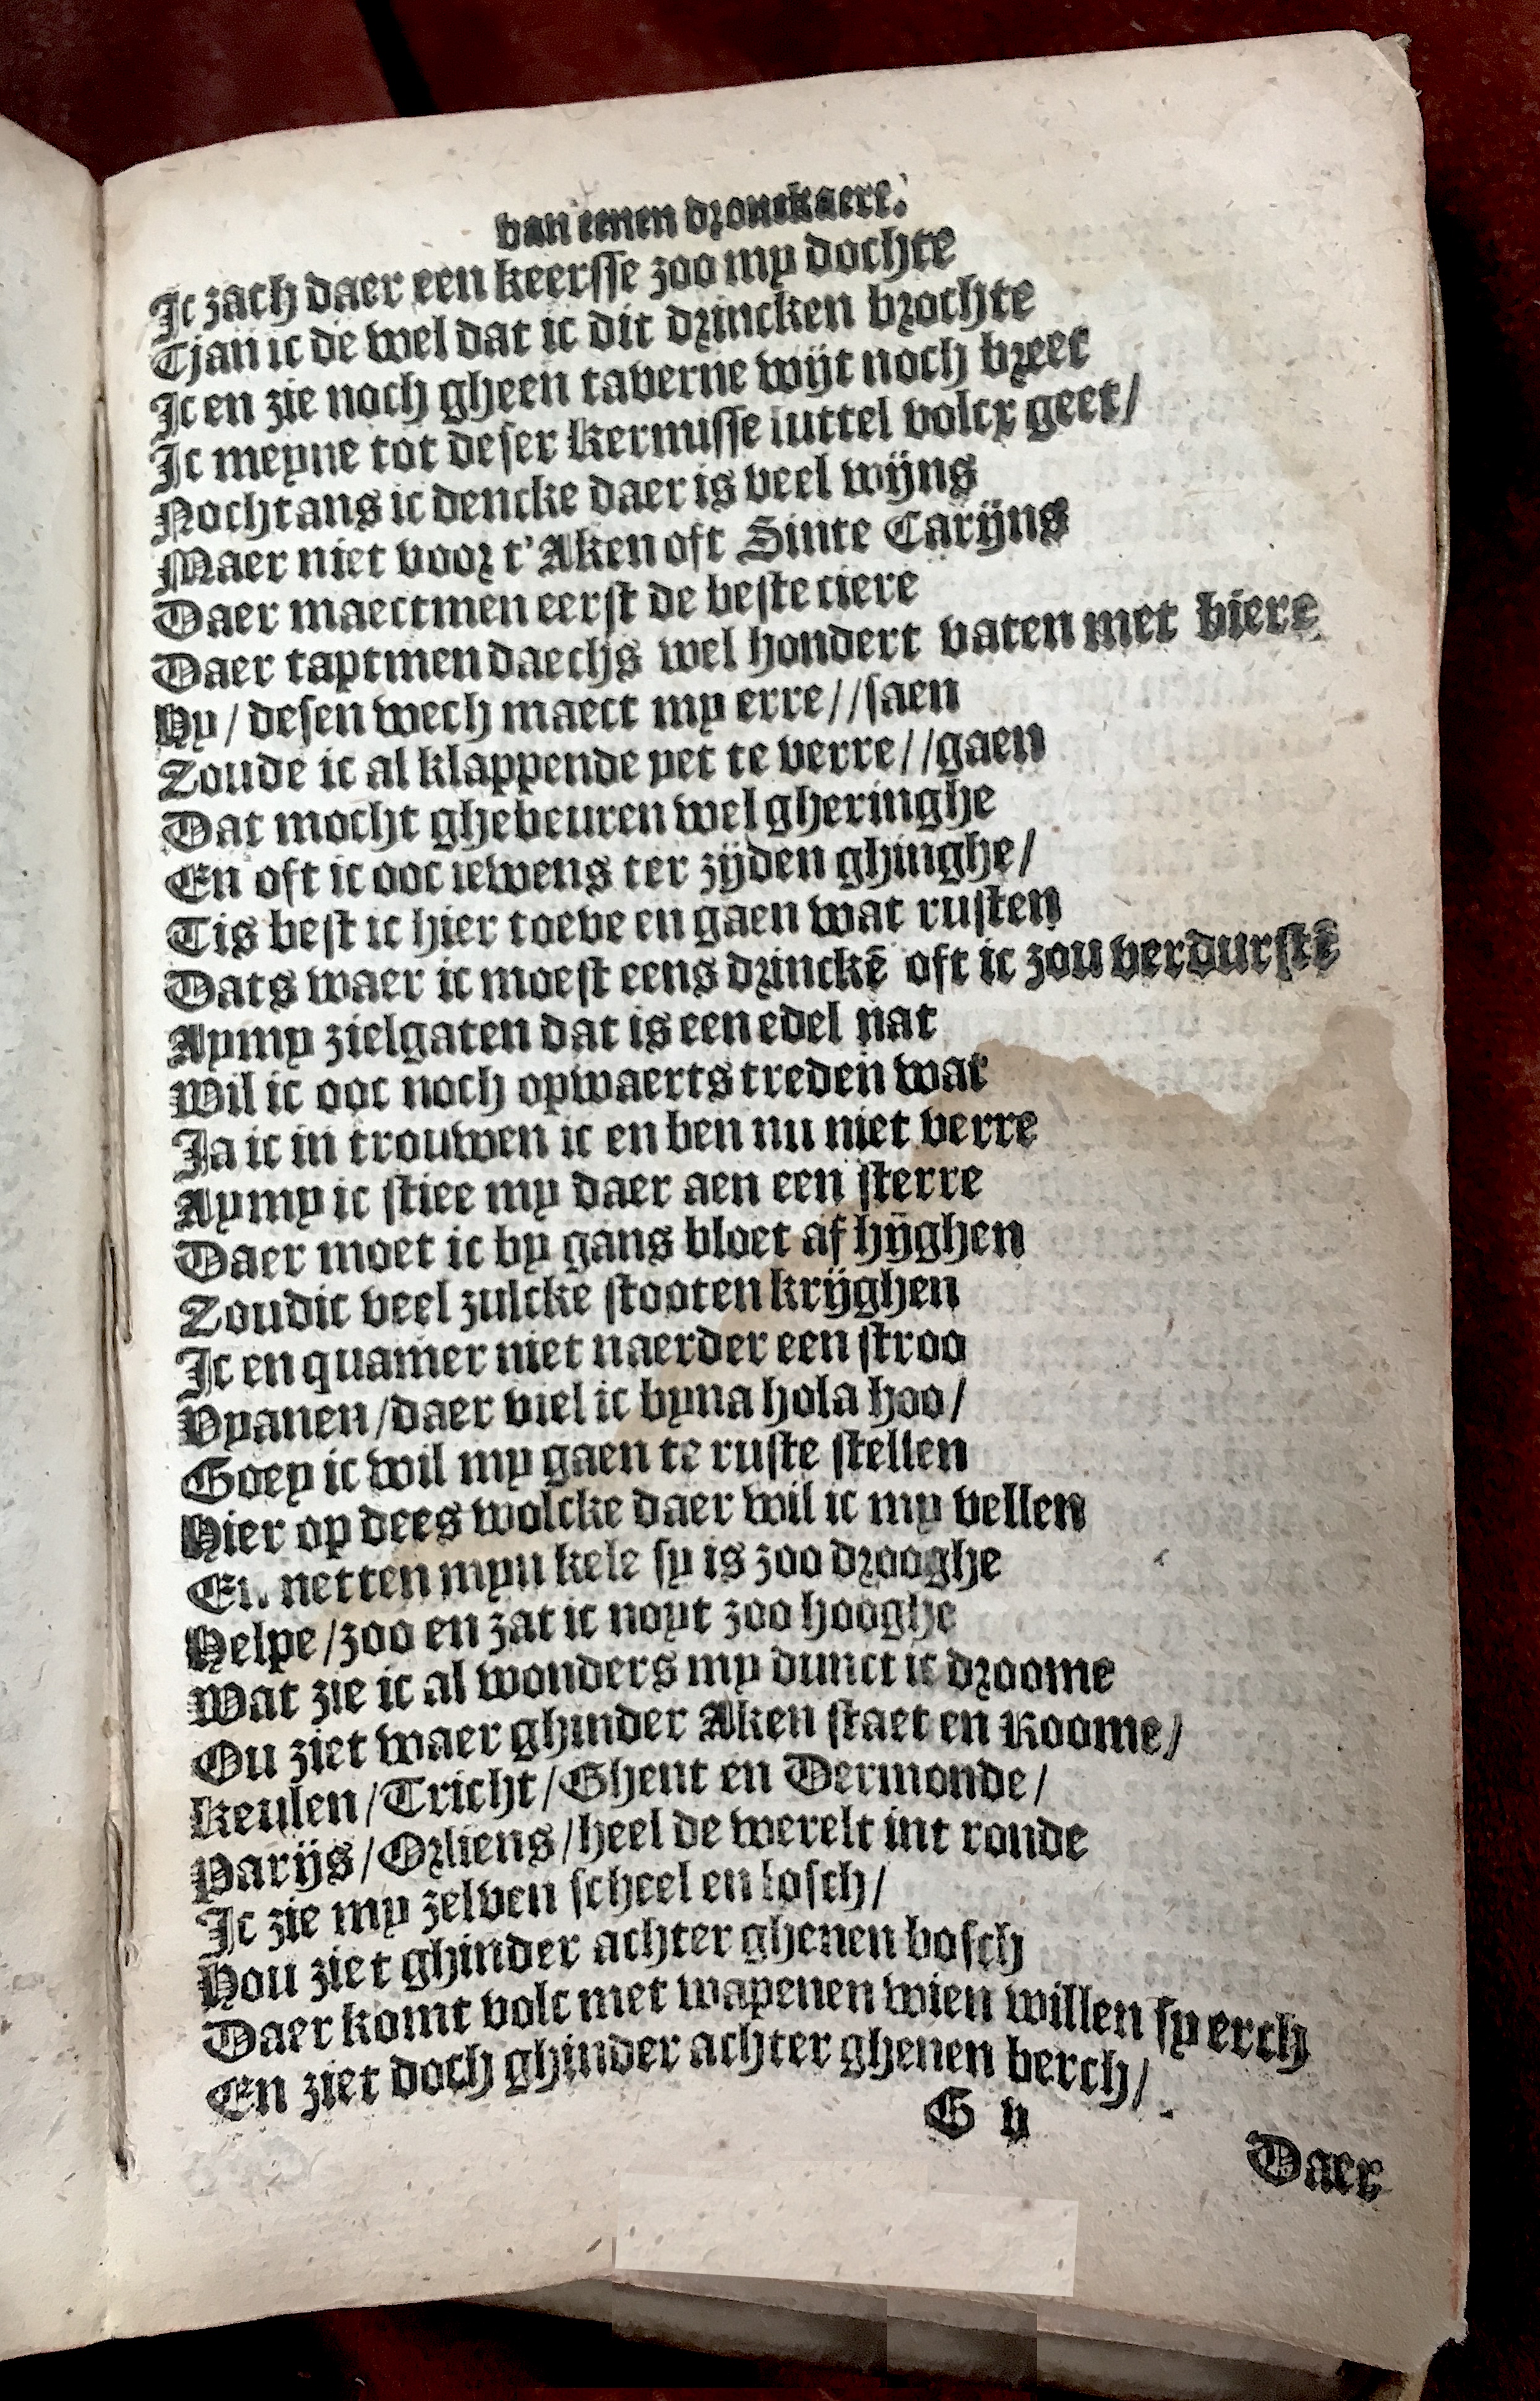 van eenen dronckaert.
Ic zach daer een keersse zoo my dochte
Tjan ic de wel dat ic dit drincken brochte
Ic en zie noch gheen taverne wijt noch breet
Ic meyne tot deser kermisse luttel volcx geet/
Nochtans ic dencke daer is veel wijns
Maer niet voor t'Aken oft Sinte Carijns
Daer maectmen eerst de beste ciere
Daer taptmen daechs wel hondert vaten met biere
Hy/ desen wech maect my erre//saen
Zoude ic al klappende yet te verre//gaen
Dat mocht ghebeuren wel gheringhe
En oft ic ooc iewens ter zijden ghinghe/
Tis best ic hier toeve en gaen wat rusten
Dats waer ic moest eens drinckē oft ic zou verdurstē
Aymy zielgaten dat is een edel nat
Wil ic ooc noch opwaerts treden wat
Ja ic in trouwen ic en ben nu niet verre
Aymy ic stiee my daer aen een sterre
Daer moet ic by gans bloet af hijghen
Zoudic veel zulcke stooten krijghen
Ic en quamer niet naerder een stroo
Vyanen/daer viel ic byna hola hoo/
Goey ic wil my gaen te ruste stellen
Hier op dees wolcke daer wil ic my vellen
En netten myn kele sy is zoo drooghe
Helpe/zoo en zat ic noyt zoo hooghe
Wat zie ic al wonders my dunct ic droome
Ou ziet waer ghinder Aken staet en Roome/
Keulen/Tricht/Ghent en Dermonde/
Parijs/Orliens/heel de werelt int ronde
Ic zie my zelven scheel en losch/
Hou ziet ghinder achter ghenen bosch
Daer komt volc met wapenen wien willen sy erch
En ziet doch ghinder achter ghenen berch/
G v
Daer